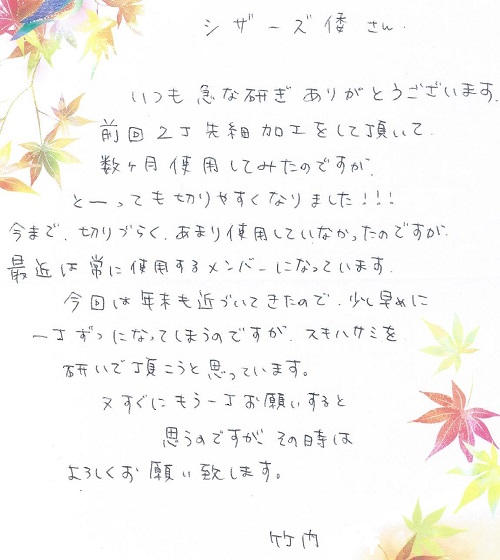 シザーズ倭さん.
いつも急な研ぎありがとうございます.
前回2丁先細加工をして頂いて.
数ヶ月使用してみたのですが.
とーっても切りやすくなりました!!!
今まで.切りづらく.あまり使用していなかったのですが.
最近は常に使用するメンバーになっています.
今回は年末も近づいてきたので.少し早めに
一丁ずつになってしまうのですが.スキハサミを
研いで頂こうと思っています。
又すぐにもう一丁お願いすると
思うのですが.その時は
よろしくお願い致します。
竹内